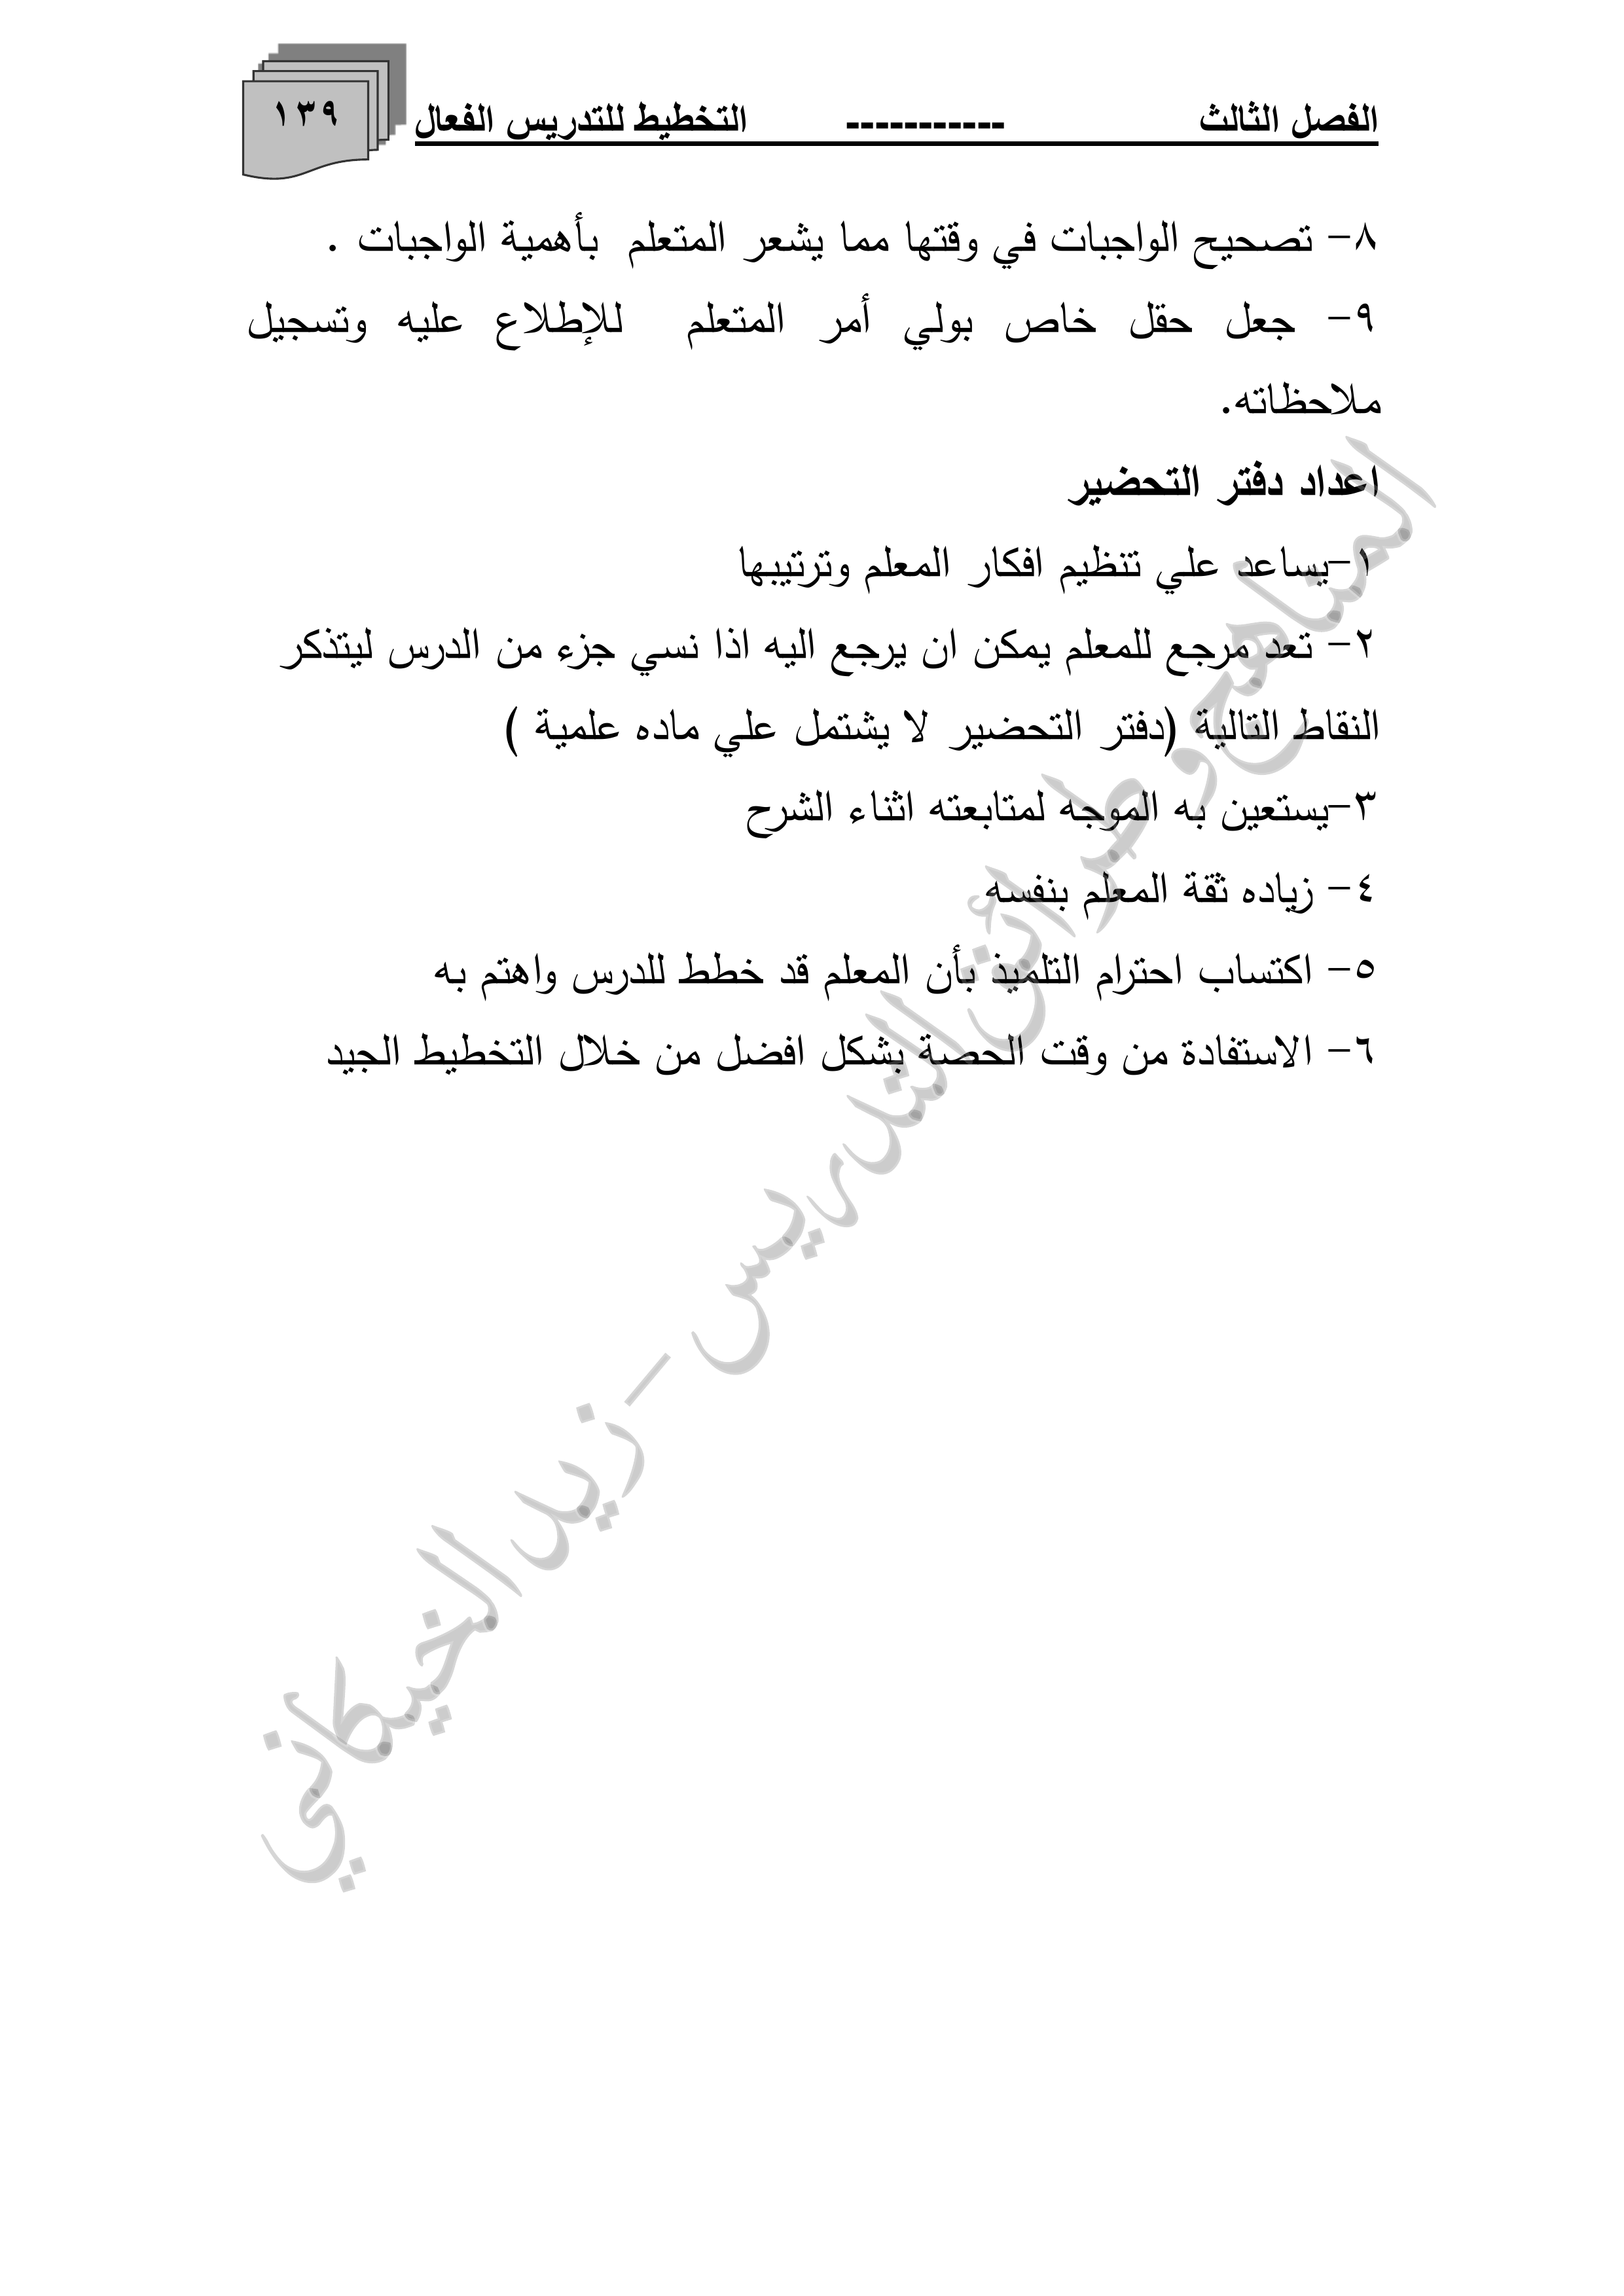 الفصل الثالث ----------- التخطيط للتدريس الفعال ١٣٩
٨- تصحيح الواجبات في وقتها مما يشعر المتعلم بأهمية الواجبات .
٩- جعل حقل خاص بولي أمر المتعلم للإطلاع عليه وتسجيل
ملاحظاته.
اعداد دفتر التحضير
١-يساعد علي تنظيم افكار المعلم وترتيبها
٢- تعد مرجع للمعلم يمكن ان يرجع اليه اذا نسي جزء من الدرس ليتذكر
النقاط التالية (دفتر التحضير لا يشتمل علي ماده علمية )
٣-يستعين به الموجه لمتابعته اثناء الشرح
٤- زياده ثقة المعلم بنفسه
٥- اكتساب احترام التلميذ بأن المعلم قد خطط للدرس واهتم به
٦- الاستفادة من وقت الحصة بشكل افضل من خلال التخطيط الجيد
المناهج وطرائق التدريس - زيد الخيكاني